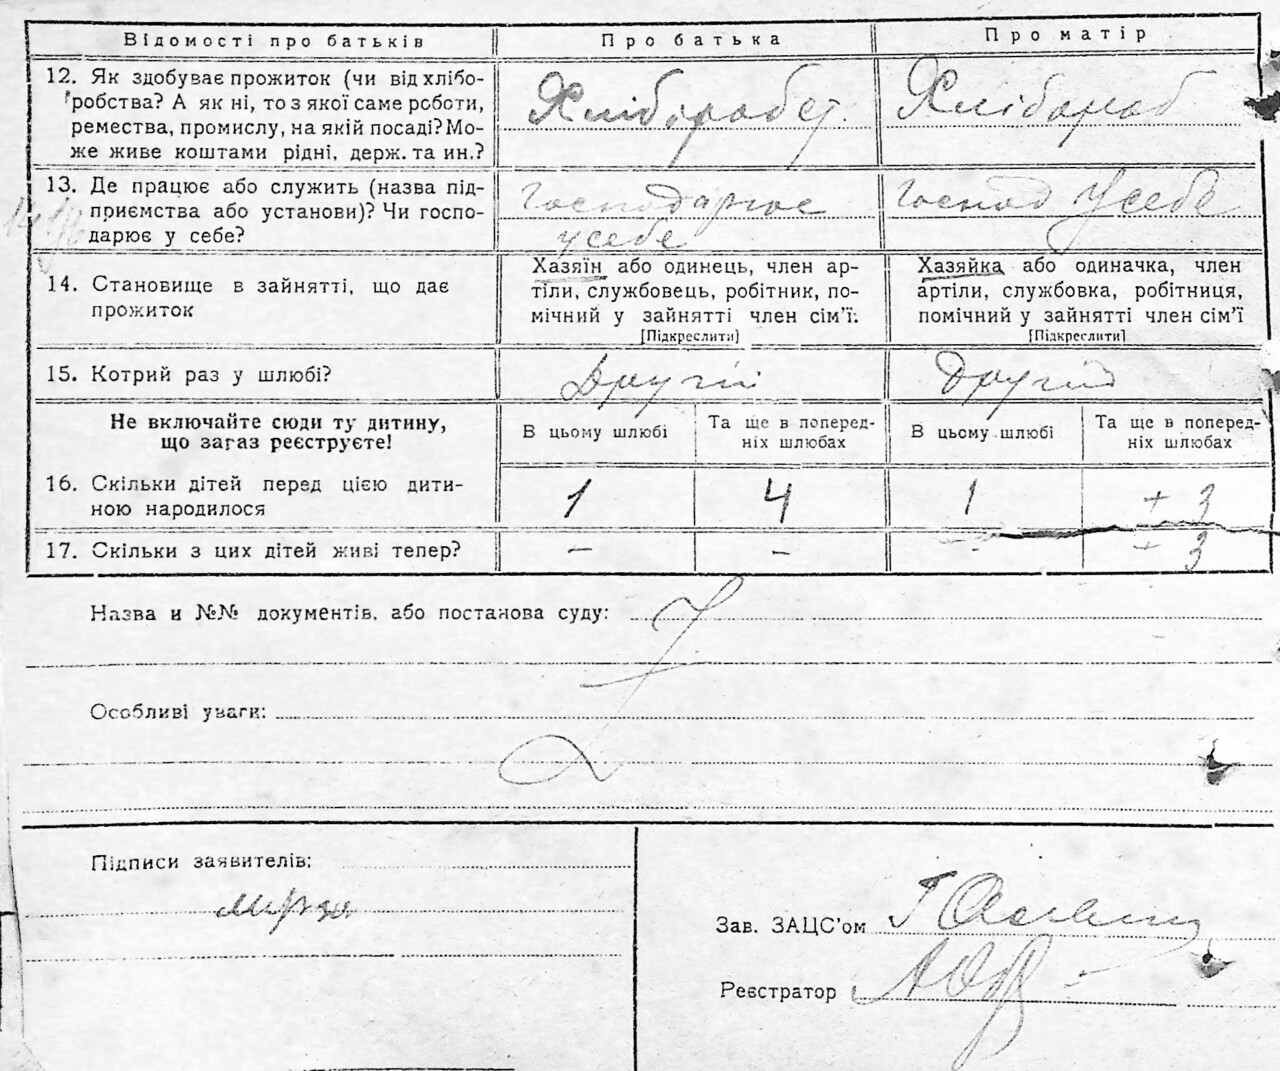 Відомості про батьків
Про батька
Про матір
12. Як здобуває прожиток (чи від хлібо-
робства? А як ні, то з якої саме роботи,
ремества, промислу, на якій посаді? Мо-
же живе коштами рідні, держ. та ин.?
13. Де працює або служить (назва під-
приємства або установи)? Чи госпо-
дарює у себе?
господарює
усебе
господ усебе
14. Становище в зайнятті, що дає
прожиток
Хазяїн або одинець, член ар-
тіли, службовець, робітник, по-
мічний у зайнятті член сім'ї.
[Підкреслити]
Хазяйка або одиначка, член
артіли, службовка, робітниця,
помічний у зайнятті член сім'ї
[Підкреслити]
15. Котрий раз у шлюбі?
Другій
Другій
Не включайте сюди ту дитину,
що загаз реєструєте!
В цьому шлюбі
Та ще в поперед-
ніх шлюбах
В цьому шлюбі
Та ще в поперед-
ніх шлюбах
16. Скільки дітей перед цією дити-
ною народилося
1
4
1
+ 3
17. Скільки з цих дітей живі тепер?
–
–
-
+ 3
Назва и №№ документів, або постанова суду:
Особливі уваги:
Підписи заявителів:
Зав. ЗАЦС'ом
Реєстратор